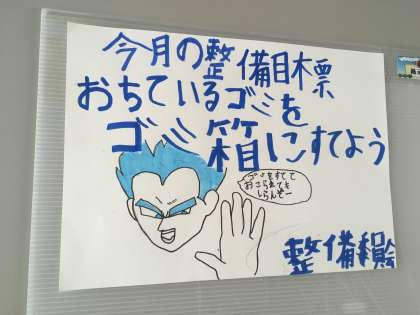 今月の整備目標
おちているゴミを
ゴミ箱にすてよう
ゴミをすてて
おこられても
しらんぞー
整備委員会